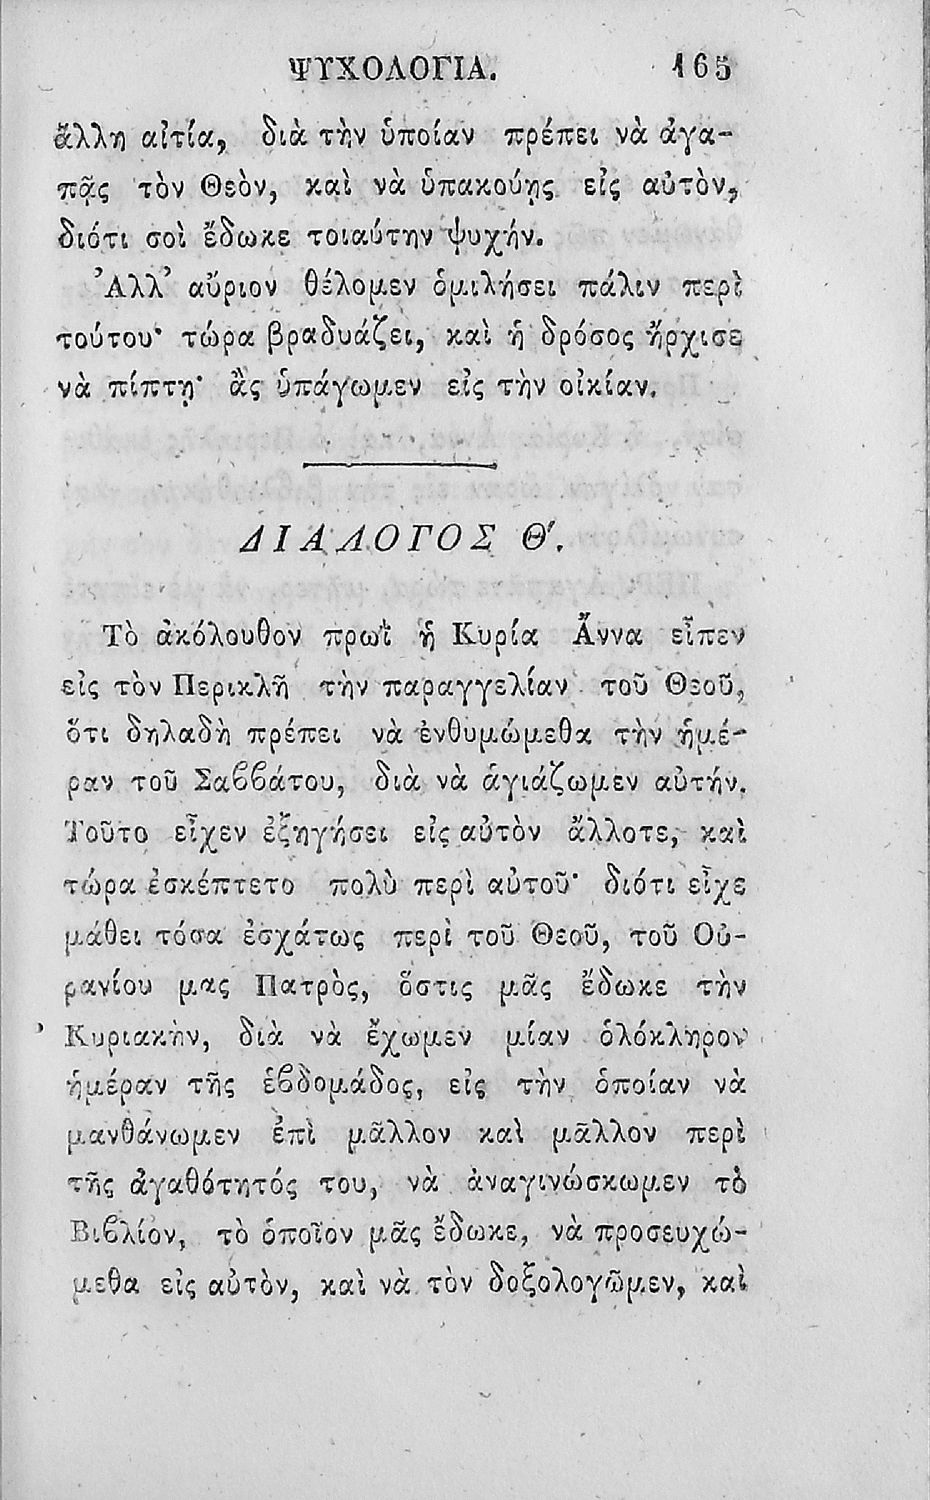 ΨΥΧΟΛΟΓΙΑ. 165
ἄλλη αἰτία, διὰ τὴν ὁποίαν πρέπει νὰ ἀγα-
πᾷς τὸν Θεὸν, καὶ νὰ ὑπακούῃς εἰς αὐτὸν,
διότι σοὶ ἔδωκε τοιαύτην ψυχήν.
Ἀλλ’ αὔριον θέλομεν ὁμιλήσει πάλιν περὶ
τούτου· τώρα βραδυάζει, καὶ ἡ δρόσος ἤρχισε
νὰ πίπτῃ· ἂς ὑπάγωμεν εἰς τὴν οἰκίαν.
ΔΙΑΛΟΓΟΣ Θ΄.
Τὸ ἀκόλουθον πρωῒ ἡ Κυρία Ἄννα εἶπεν
εἰς τὸν Περικλῆ τὴν παραγγελίαν τοῦ Θεοῦ,
ὅτι δηλαδὴ πρέπει νὰ ἐνθυμώμεθα τὴν ἡμέ-
ραν τοῦ Σαββάτου, διὰ νὰ ἁγιάζωμεν αὐτήν.
Τοῦτο εἶχεν ἐξηγήσει εἰς αὐτὸν ἄλλοτε, καὶ
τώρα ἐσκέπτετο πολὺ περὶ αὐτοῦ· διότι εἶχε
μάθει τόσα ἐσχάτως περὶ τοῦ Θεοῦ, τοῦ Οὐ-
ρανίου μας Πατρὸς, ὅστις μᾶς ἔδωκε τὴν
Κυριακὴν, διὰ νὰ ἔχωμεν μίαν ὁλόκληρον
ἡμέραν τῆς ἑβδομάδος, εἰς τὴν ὁποίαν νὰ
μανθάνωμεν ἐπὶ μᾶλλον καὶ μᾶλλον περὶ
τῆς ἀγαθότητός του, νὰ ἀναγινώσκωμεν τὸ
Βιβλίον, τὸ ὁποῖον μᾶς ἔδωκε, νὰ προσευχώ-
μεθα εἰς αὐτὸν, καὶ νὰ τὸν δοξολογῶμεν, καὶ